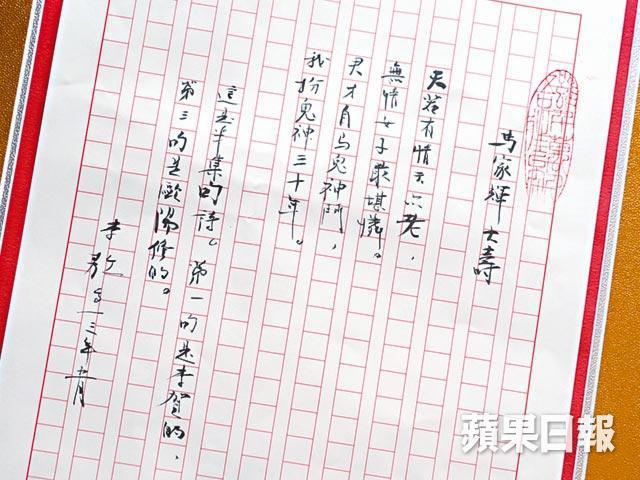 马家輝大壽
天若有情天亦老，
無情女子最堪憐。
君才自与鬼神鬥，
我扮鬼神三十年。
這是半集句詩。第一句是李賀的，
第三句是歐陽修的。
李敖 三年 月
蘋果日報